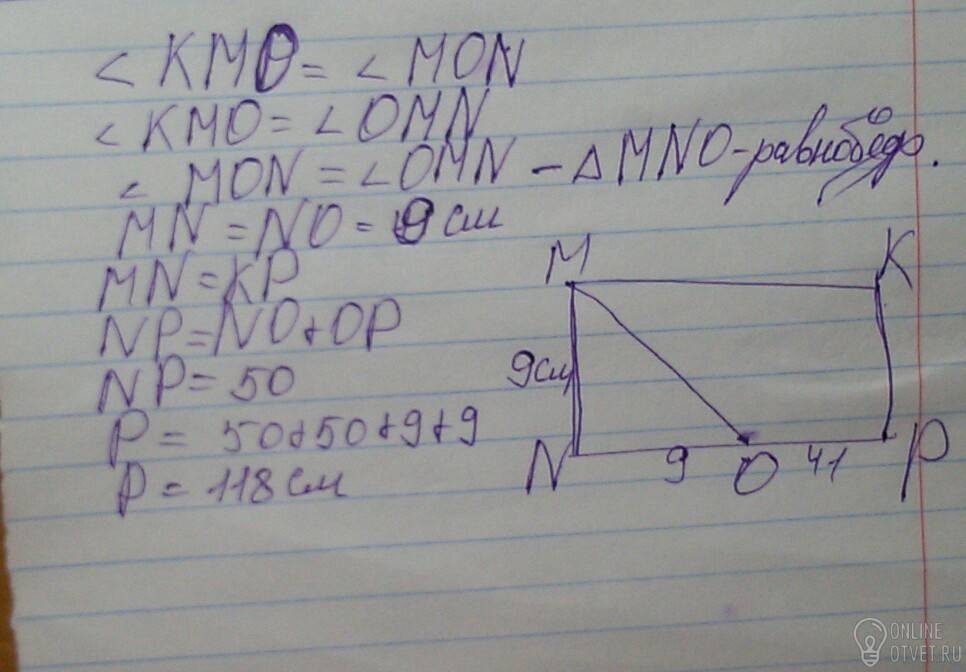 < KMO = < MON
< KMO = < OMN
< MON = < OMN – △ MNO - равнобедр.
MN = NO = 9 см
MN = KP
NP = NO + OP
NP = 50
P = 50 + 50 + 9 + 9
P = 118 см
M K
9 см
N 9 O 41 P
ONLINE
OTVET.RU